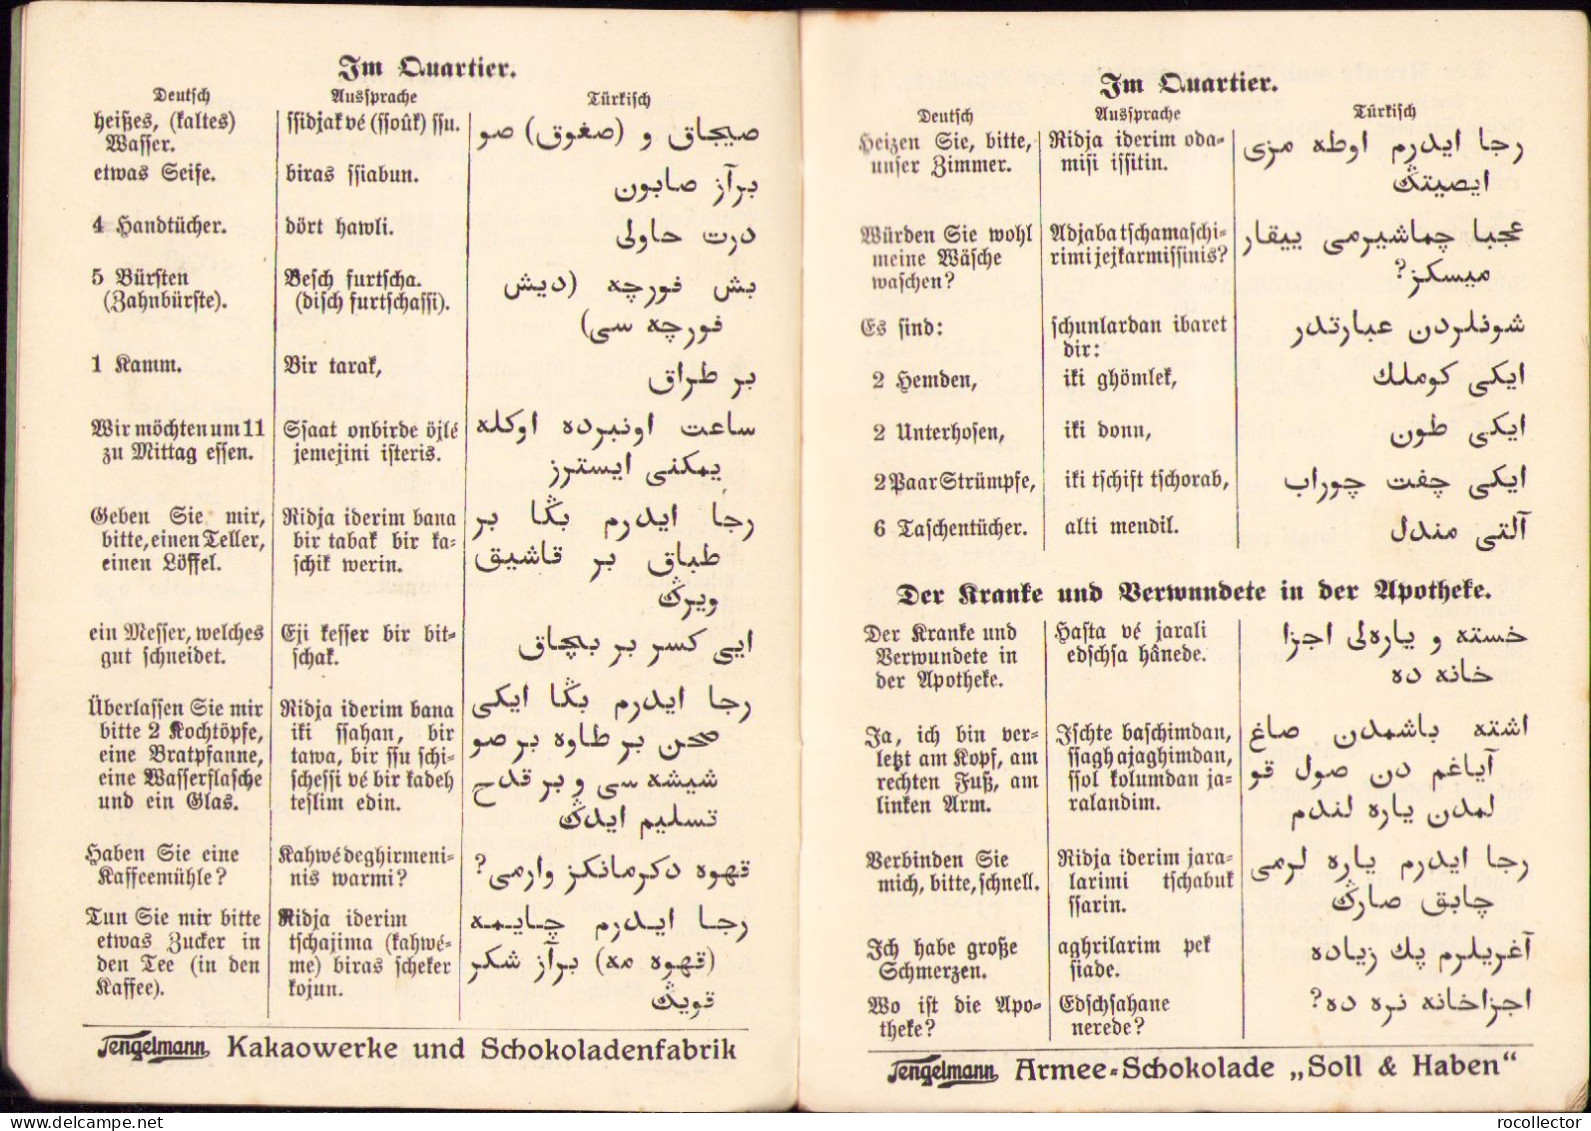 Im Quartier.
Deutsch Aussprache Türkisch
heißes, (kaltes) ssidjak vé (ssoûk) ssu. صیجاق و (صغوق) صو
Wasser.
etwas Seife. biras ssiabun. برآز صابون
4 Handtücher. dört hawli. درت حاولی
5 Bürsten Besch furtscha. بش فورچه (دیش
(Zahnbürste). (disch furtschassi). فورچه سی)
1 Kamm. Bir tarak, بر طراق
Wir möchten um 11 Ssaat onbirde öjlé ساعت اونبرده اوکله
zu Mittag essen. jemejini isteris. یمکنی ایسترز
Geben Sie mir, Ridja iderim bana رجا ایدرم بڭا بر
bitte, einen Teller, bir tabak bir ka= طباق بر قاشیق
einen Löffel. schik werin. ویرڭ
ein Messer, welches Eji kesser bir bit= ایی کسر بر بچاق
gut schneidet. schak.
Überlassen Sie mir Ridja iderim bana رجا ایدرم بڭا ایکی
bitte 2 Kochtöpfe, iki ssahan, bir صحن بر طاوه بر صو
eine Bratpfanne, tawa, bir ssu schi= شیشه سی و بر قدح
eine Wasserflasche schessi vé bir kadeh تسلیم ایدڭ
und ein Glas. teslim edin.
Haben Sie eine Kahwé deghirmeni= قهوه دکرمانکز وارمی؟
Kaffeemühle? nis warmi?
Tun Sie mir bitte Ridja iderim رجا ایدرم چایمه
etwas Zucker in tschajima (kahwé= (قهوه مه) برآز شکر
den Tee (in den me) biras scheker قویڭ
Kaffee). kojun.
Tengelmann Kakaowerke und Schokoladenfabrik
Im Quartier.
Deutsch Aussprache Türkisch
Heizen Sie, bitte, Ridja iderim oda= رجا ایدرم اوطه مزی
unser Zimmer. misi issitin. ایصیتڭ
Würden Sie wohl Adjaba tschamaschi= عجبا چماشیرمی ییقار
meine Wäsche rimi jejkarmissinis? میسکز؟
waschen?
Es sind: schunlardan ibaret شونلردن عبارتدر
dir:
2 Hemden, iki ghömlek, ایکی کوملك
2 Unterhosen, iki donn, ایکی طون
2 Paar Strümpfe, iki tschift tschorab, ایکی چفت چوراب
6 Taschentücher. alti mendil. آلتی مندل
Der Kranke und Verwundete in der Apotheke.
Der Kranke und Hasta vé jarali خسته و یارهلی اجزا
Verwundete in edschsa hânede. خانه ده
der Apotheke.
Ja, ich bin ver= Ischte baschimdan, اشته باشمدن صاغ
letzt am Kopf, am ssagh ajaghimdan, آیاغم دن صول قو
rechten Fuß, am ssol kolumdan ja= لمدن یاره لندم
linken Arm. ralandim.
Verbinden Sie Ridja iderim jara= رجا ایدرم یاره لرمی
mich, bitte, schnell. larimi tschabuk چابق صارڭ
ssarin.
Ich habe große aghrilarim pek آغریلرم پك زیاده
Schmerzen. siade.
Wo ist die Apo= Edschsahane اجزاخانه نره ده؟
theke? nerede?
Tengelmann Armee=Schokolade „Soll & Haben“
rocollector